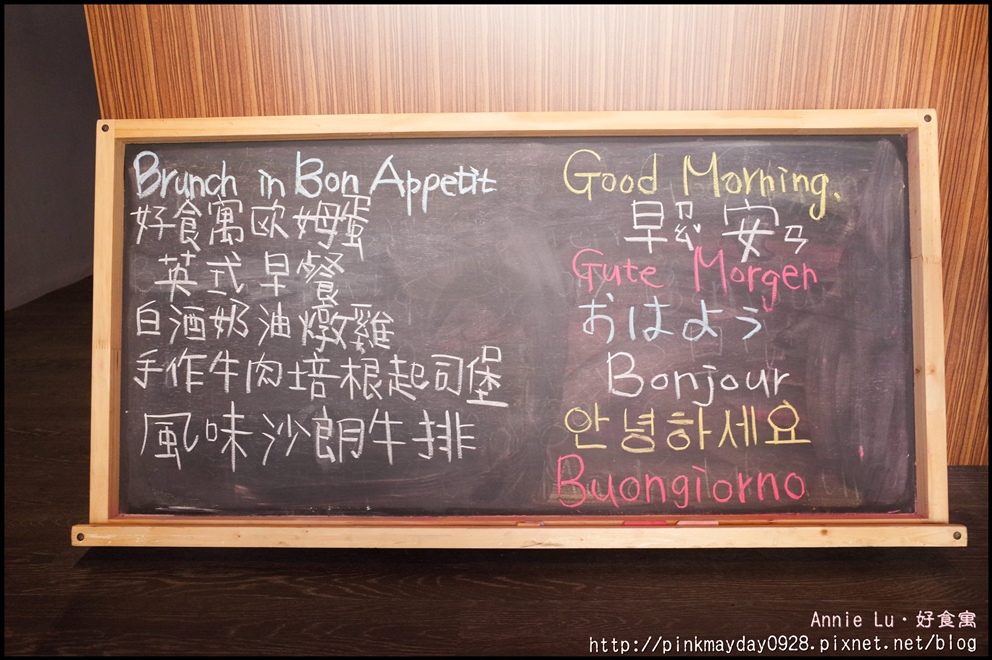 Brunch in Bon Appetit
好食寓歐姆蛋
英式早餐
白酒奶油燉雞
手作牛肉培根起司堡
風味沙朗牛排
Good Morning.
早ㄗㄠˇ安ㄢ
Gute Morgen
おはよう
Bonjour
안녕하세요
Buongiorno
Annie Lu·好食寓
http://pinkmayday0928.pixnet.net/blog